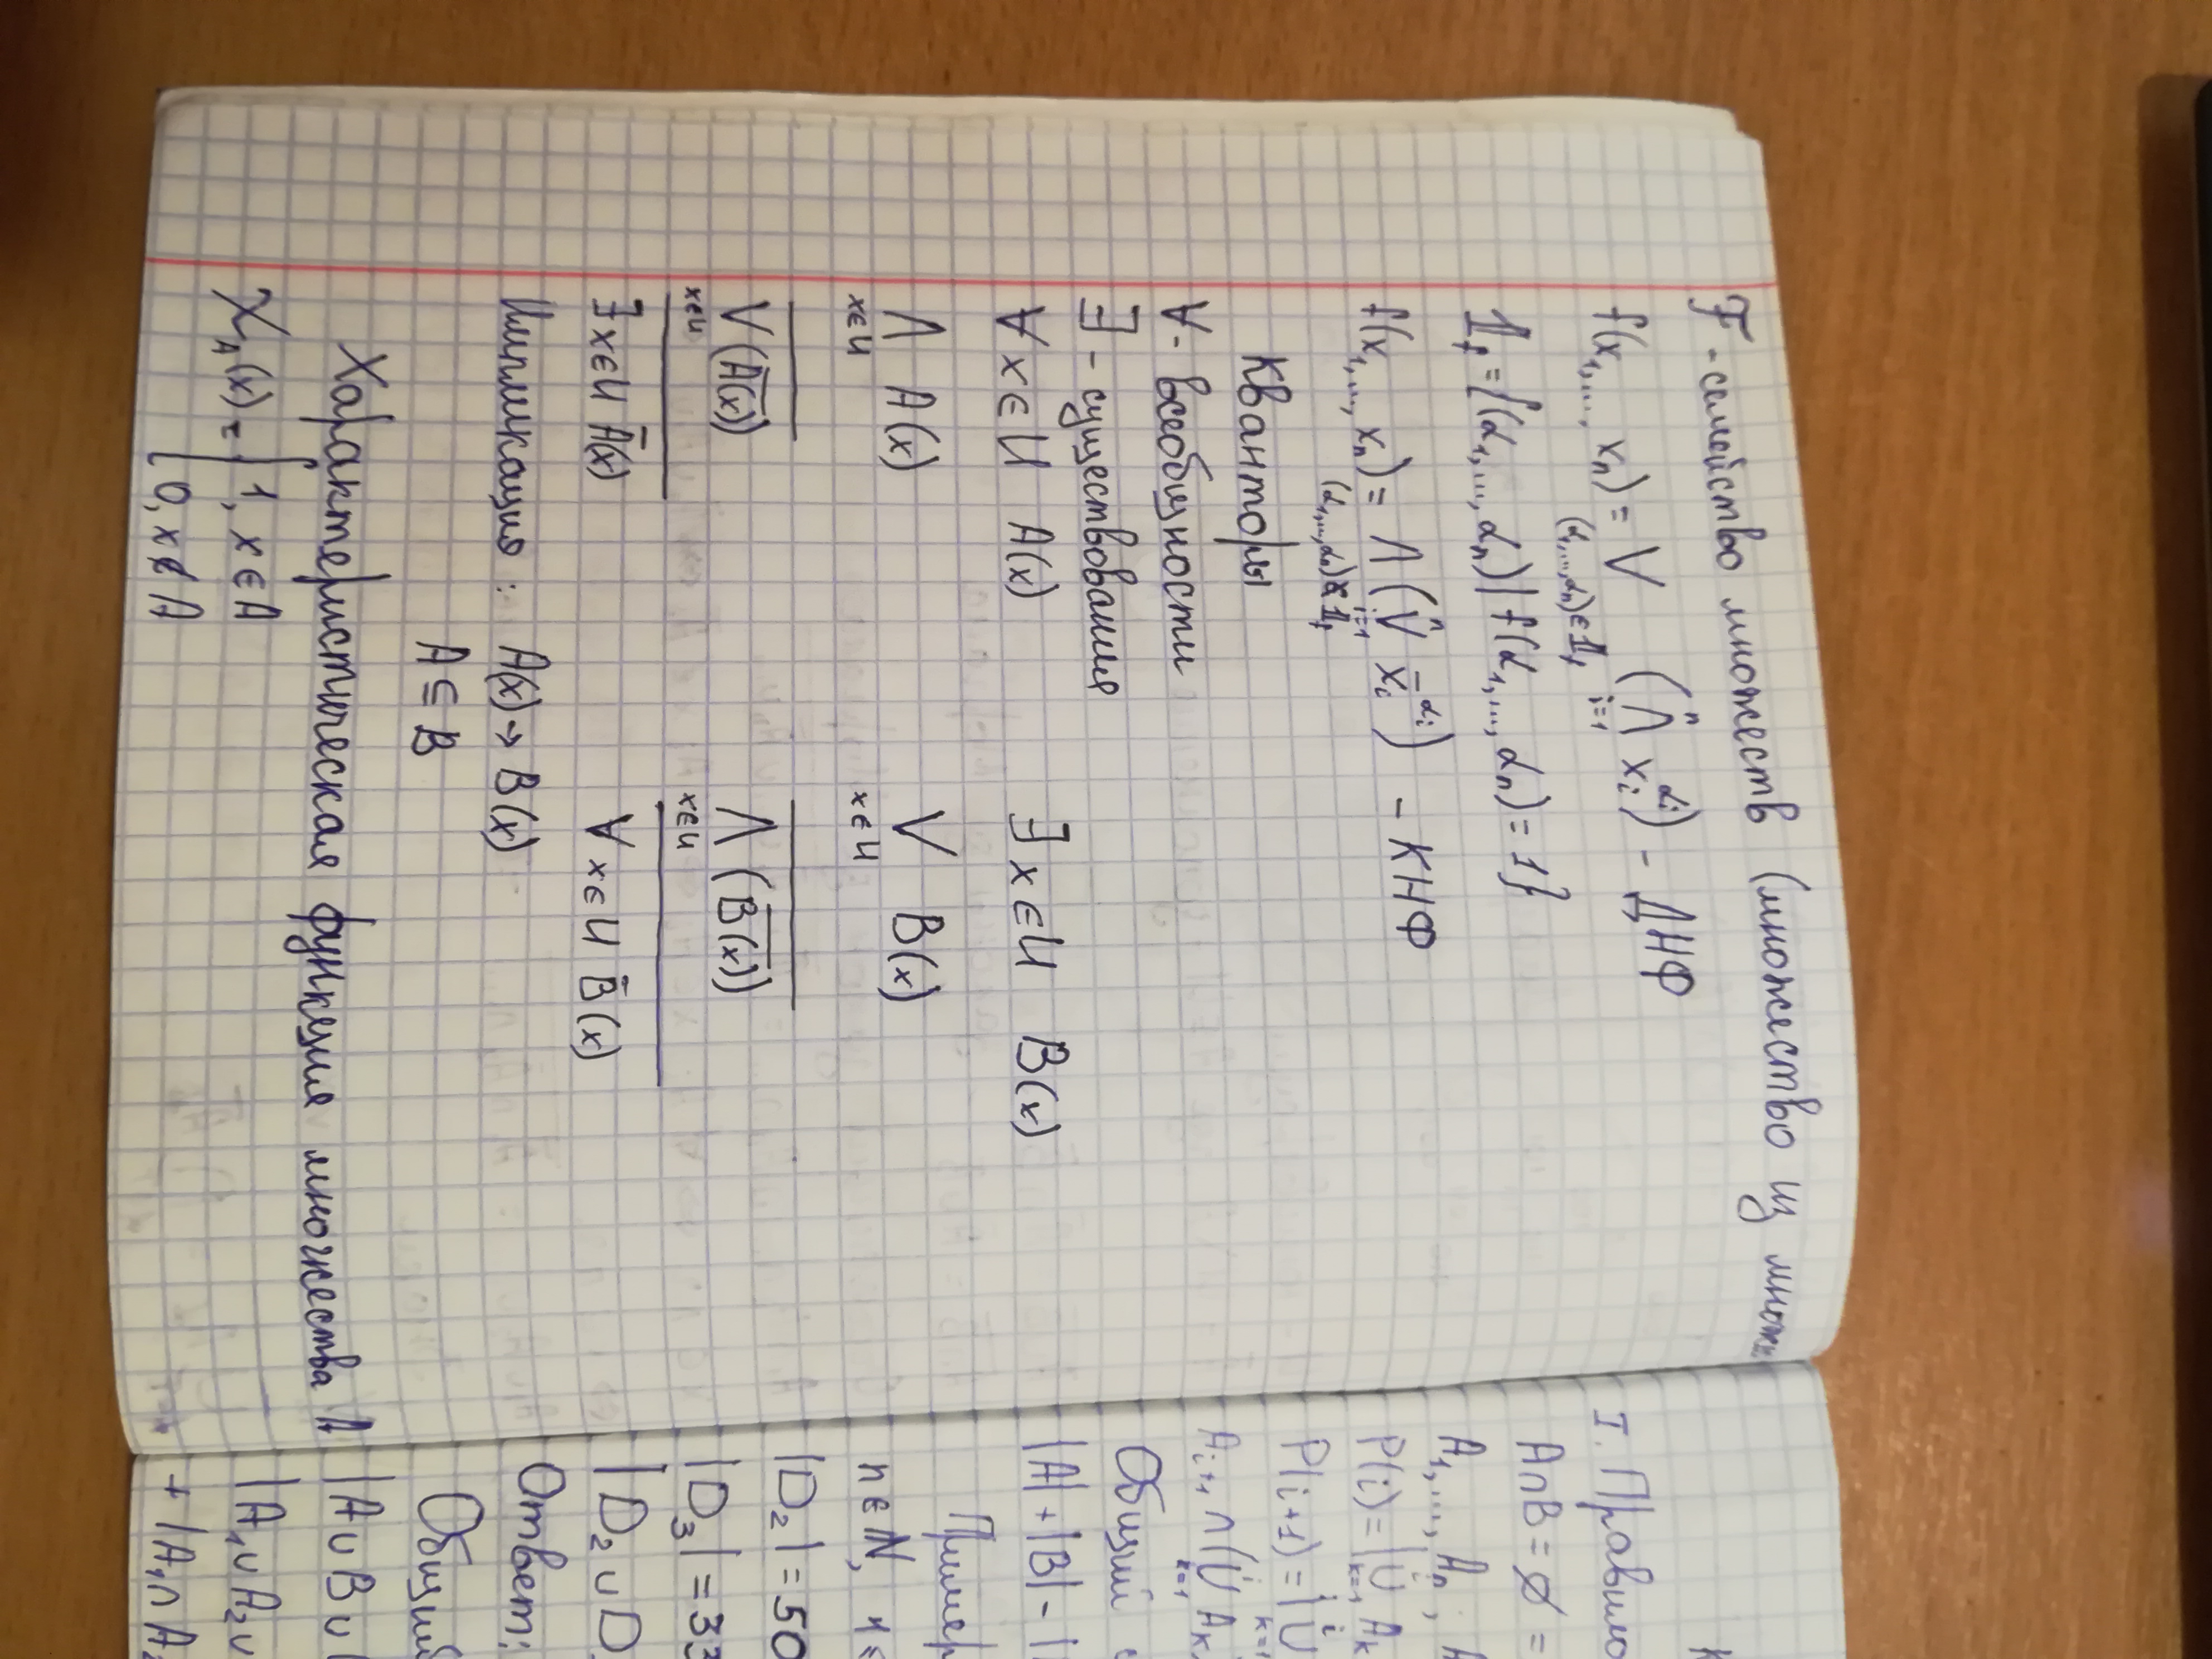 F - семейство множеств (множество из множ
f(x₁,..., xₙ) = V (⋀ xᵢ^αᵢ) - ДНФ
(α₁,...,αₙ)∈1_f i=1 n
1_f = {(α₁,..., αₙ) | f(α₁,..., αₙ) = 1}
f(x₁,..., xₙ) = Λ (V x̄ᵢ^αᵢ) - КНФ
(α₁,...,αₙ)∉1_f i=1 n
Кванторы
∀ - всеобщности
∃ - существования
∀x∈U A(x) ∃x∈U B(x)
Λ A(x) V B(x)
x∈U x∈U
V (A̅(̅x̅)̅) Λ (B̅(̅x̅)̅)
x∈U x∈U
∃x∈U Ā(x) ∀x∈U B̄(x)
Импликация: A(x) → B(x)
A ⊆ B
Характеристическая функция множества A
χ_A(x) = { 1, x∈A
0, x∉A
I. Правило
A∩B = ∅ =
A₁,..., Aₙ;
P(i) = |∪ Aₖ
k=1 i
P(i+1) = |∪
Aᵢ₊₁ ∩ (∪ Aₖ
k=1 i
Общий
|A| + |B| - |
Пример
n∈N,
|D₂| = 50
|D₃| = 33
|D₂ ∪ D
Ответ:
Общий
|A ∪ B ∪
|A₁ ∪ A₂ ∪
+ |A₁ ∩ A₂